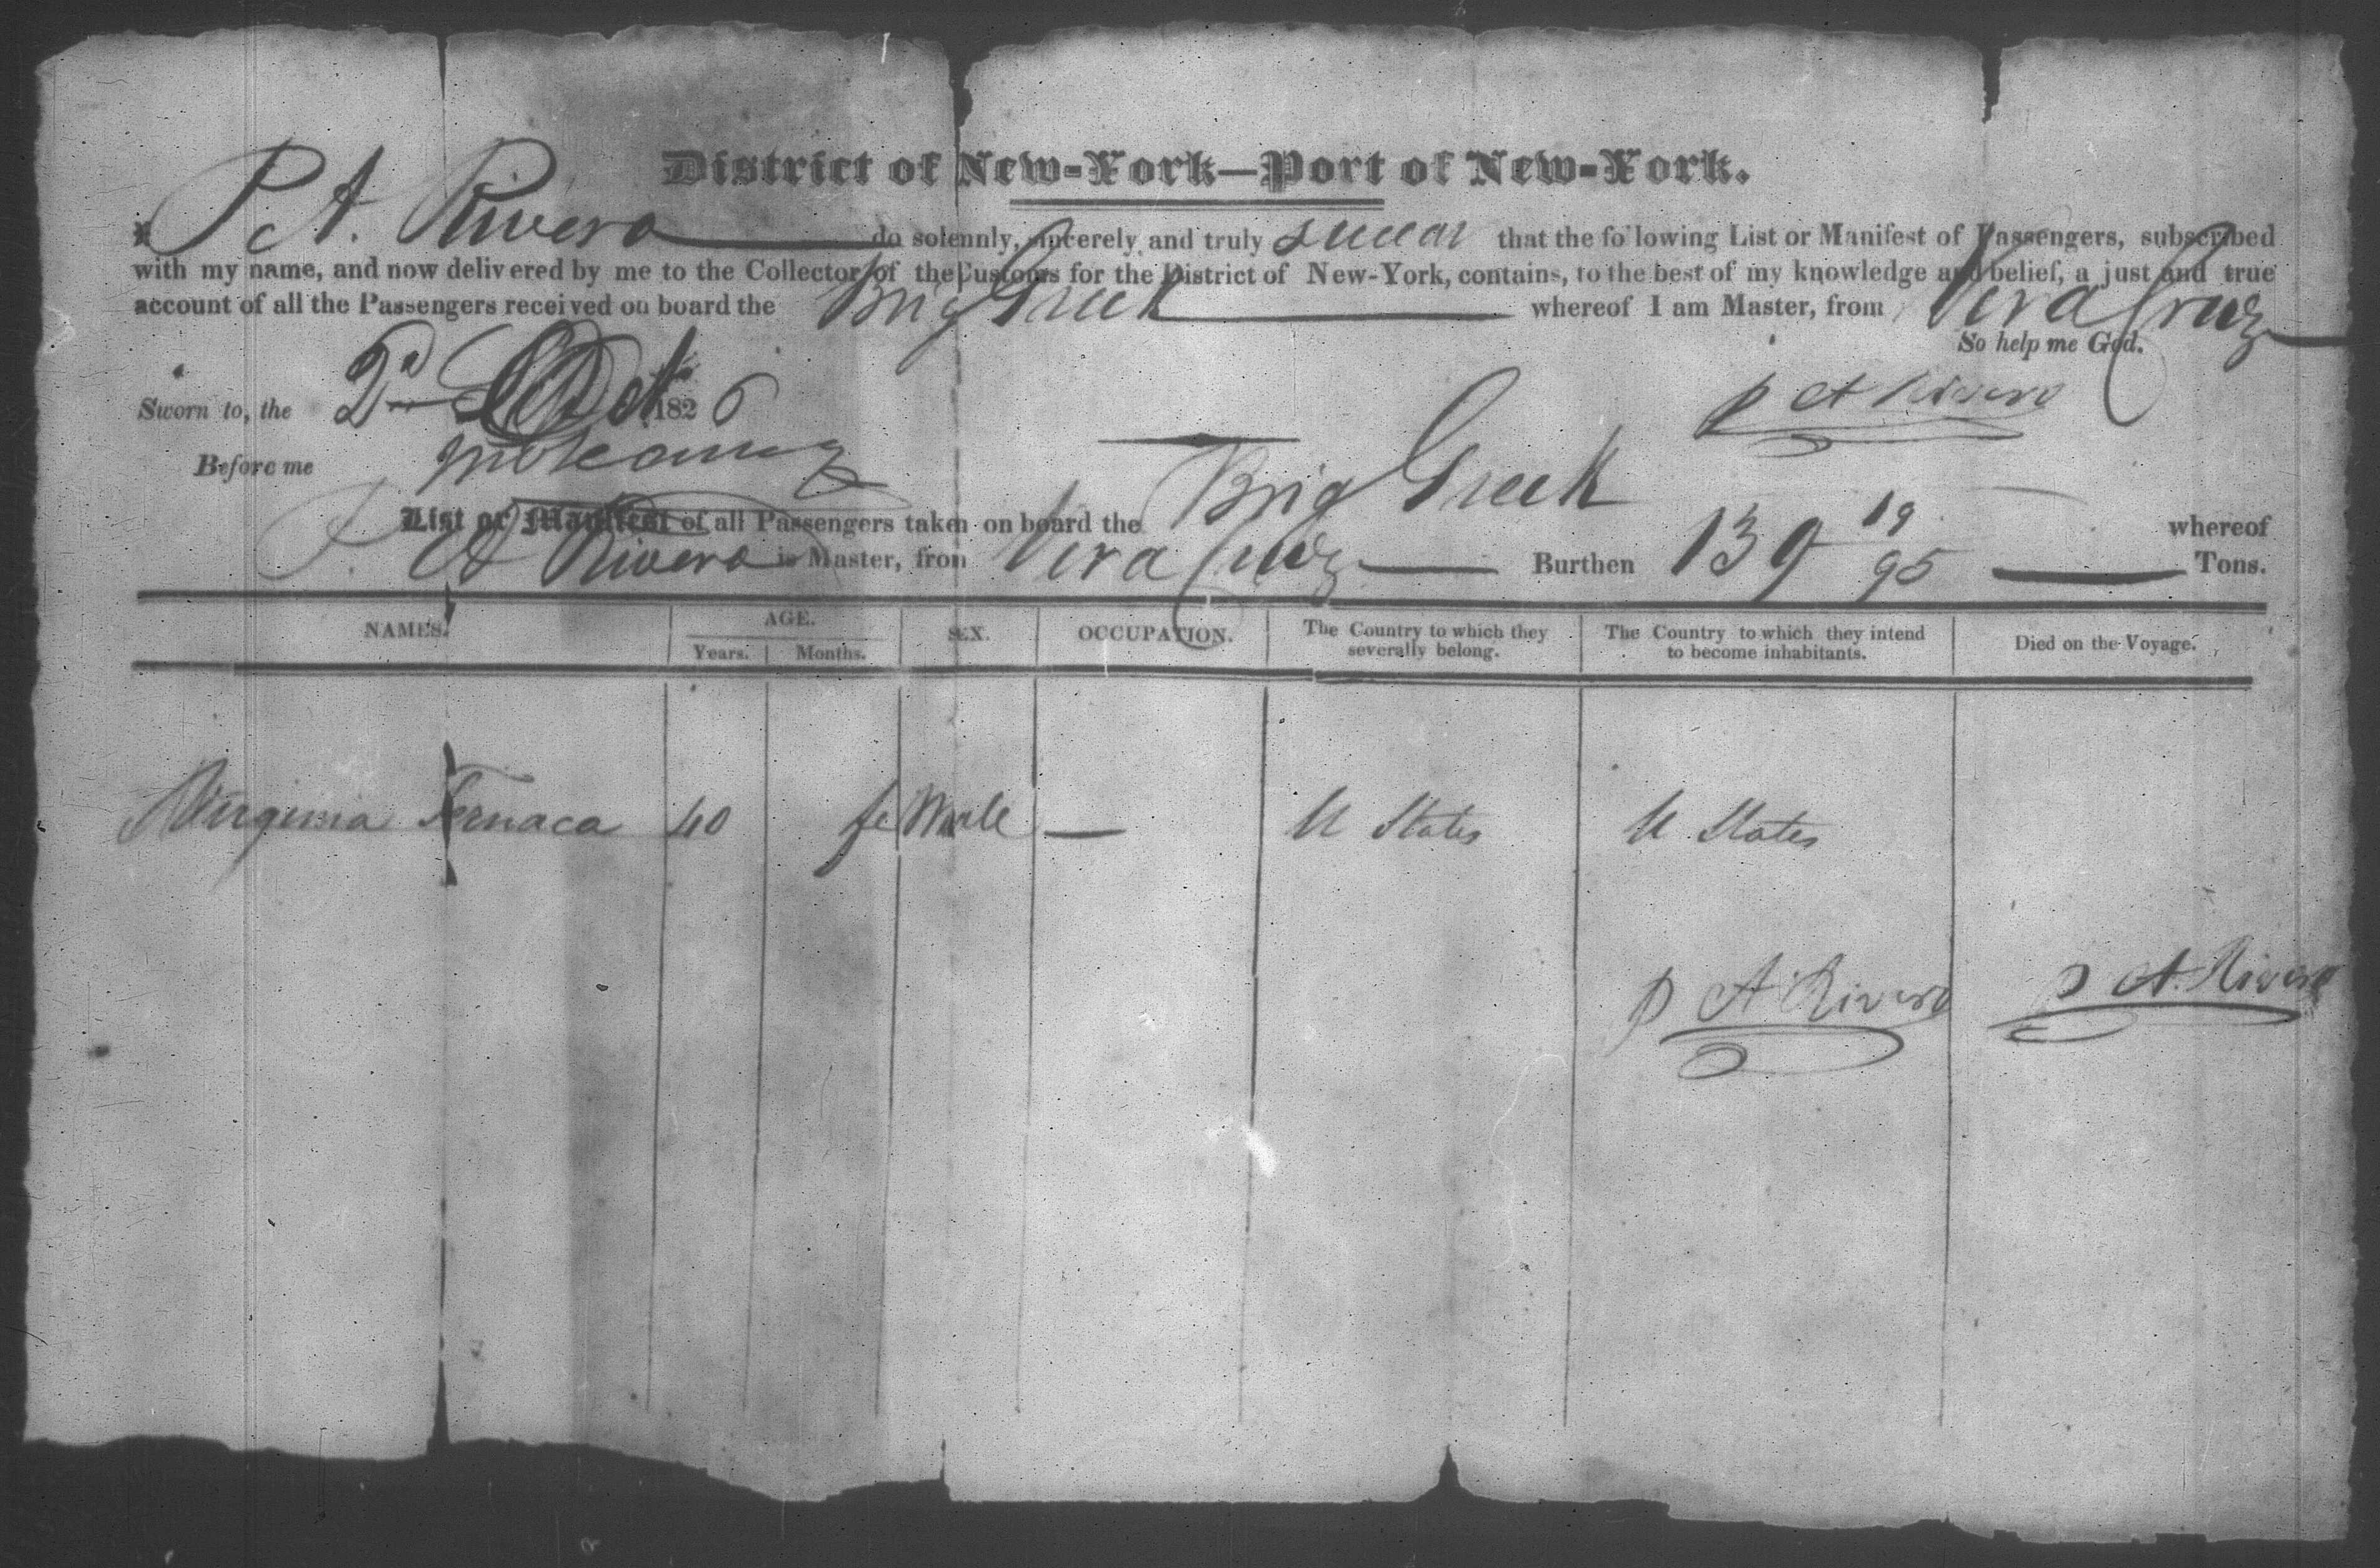 District of New-York—Port of New-York.
I P A. Rivera do solemnly, sincerely and truly swear that the following List or Manifest of Passengers, subscribed
with my name, and now delivered by me to the Collector of the Customs for the District of New-York, contains, to the best of my knowledge and belief, a just and true
account of all the Passengers received on board the Brig Greek whereof I am Master, from Vera Cruz
So help me God.
Sworn to, the 2d Oct 1826
P A Rivera
Before me
List or Manifest of all Passengers taken on board the Brig Greek whereof
P. A Rivera is Master, from Vera Cruz Burthen 139 19/95 Tons.
NAMES. AGE. SEX. OCCUPATION. The Country to which they severally belong. The Country to which they intend to become inhabitants. Died on the Voyage.
Years. Months.
Virginia 40 fe Male — U States U States
P A Rivera P A. Rivera